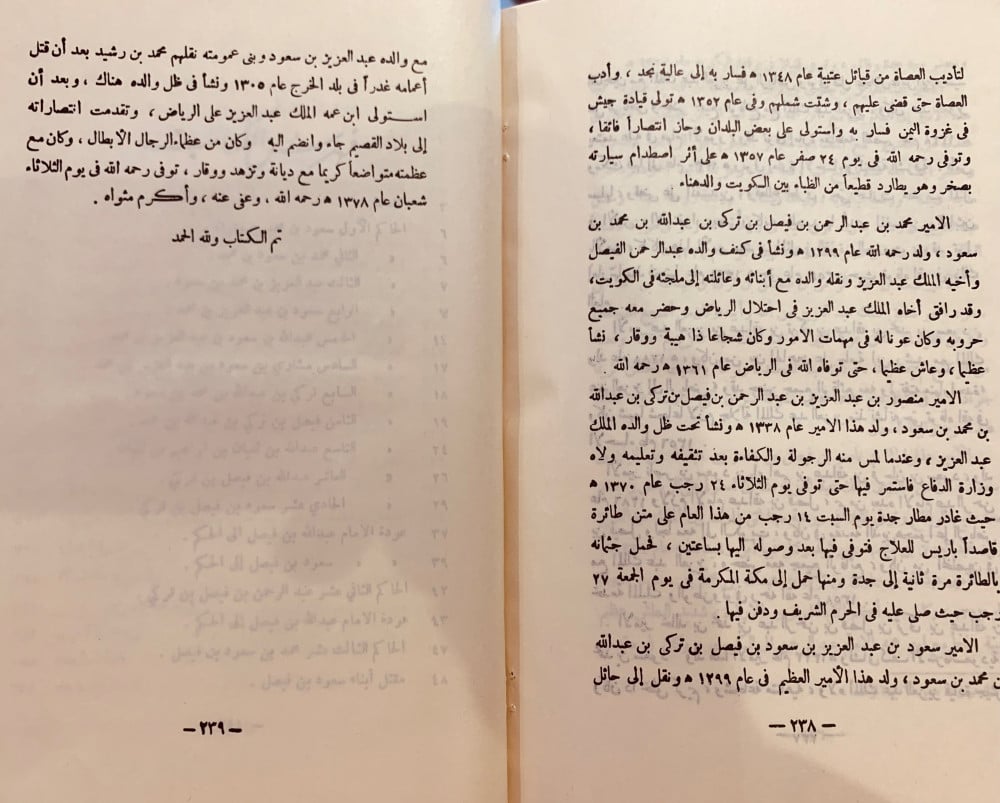 لتأديب العصاة من قبائل عتيبة عام ١٣٤٨ ه فسار به إلى عالية نجد ، وأدب
العصاة حتى قضى عليهم ، وشتت شملهم وفى عام ١٣٥٢ ه تولى قيادة جيش
فى غزوة اليمن فسار به واستولى على بعض البلدان وحاز انتصاراً فائقا ،
وتوفى رحمه الله فى يوم ٢٤ صفر عام ١٣٥٧ ه على أثر اصطدام سيارته
بصخر وهو يطارد قطيعاً من الظباء بين الكويت والدهناء .
الامير محمد بن عبد الرحمن بن فيصل بن تركى بن عبدالله بن محمد بن
سعود ، ولد رحمه الله عام ١٢٩٩ ه ونشأ فى كنف والده عبدالرحمن الفيصل
وأخيه الملك عبد العزيز ونقله والده مع أبنائه وعائلته إلى ملجئه فى الكويت،
وقد رافق أخاه الملك عبد العزيز فى احتلال الرياض وحضر معه جميع
حروبه وكان عونا له فى مهمات الامور وكان شجاعا ذا هيبة ووقار ، نشأ
عظيما ، وعاش عظيما ، حتى توفاه الله فى الرياض عام ١٣٦١ ه رحمه الله .
الامير منصور بن عبد العزيز بن عبد الرحمن بن فيصل بن تركى بن عبدالله
بن محمد بن سعود ، ولد هذا الامير عام ١٣٣٨ ه ونشأ تحت ظل والده الملك
عبد العزيز ، وعندما لمس منه الرجولة والكفاءة بعد تثقيفه وتعليمه ولاه
وزارة الدفاع فاستمر فيها حتى توفى يوم الثلاثاء ٢٤ رجب عام ١٣٧٠ ه
حيث غادر مطار جدة يوم السبت ١٤ رجب من هذا العام على متن طائرة
قاصداً باريس للعلاج فتوفى فيها بعد وصوله اليها بساعتين ، فحمل جثمانه
بالطائرة مرة ثانية إلى جدة ومنها حمل إلى مكة المكرمة فى يوم الجمعة ٢٧
رجب حيث صلى عليه فى الحرم الشريف ودفن فيها .
الامير سعود بن عبد العزيز بن سعود بن فيصل بن تركى بن عبدالله
بن محمد بن سعود ، ولد هذا الأمير العظيم فى عام ١٢٩٩ ه ونقل إلى حائل
— ٢٣٨ —
مع والده عبد العزيز بن سعود وبنى عمومته نقلهم محمد بن رشيد بعد أن قتل
أعمامه غدراً فى بلد الخرج عام ١٣٠٥ ونشأ فى ظل والده هناك ، وبعد أن
استولى ابن عمه الملك عبد العزيز على الرياض ، وتقدمت انتصاراته
إلى بلاد القصيم جاء وانضم اليه وكان من عظماء الرجال الأبطال ، وكان مع
عظمته متواضعا كريما مع ديانة وتزهد ووقار ، توفى رحمه الله فى يوم الثلاثاء
شعبان عام ١٣٧٨ ه رحمه الله ، وعفى عنه ، وأكرم مثواه .
تم الكتاب ولله الحمد
— ٢٣٩ —